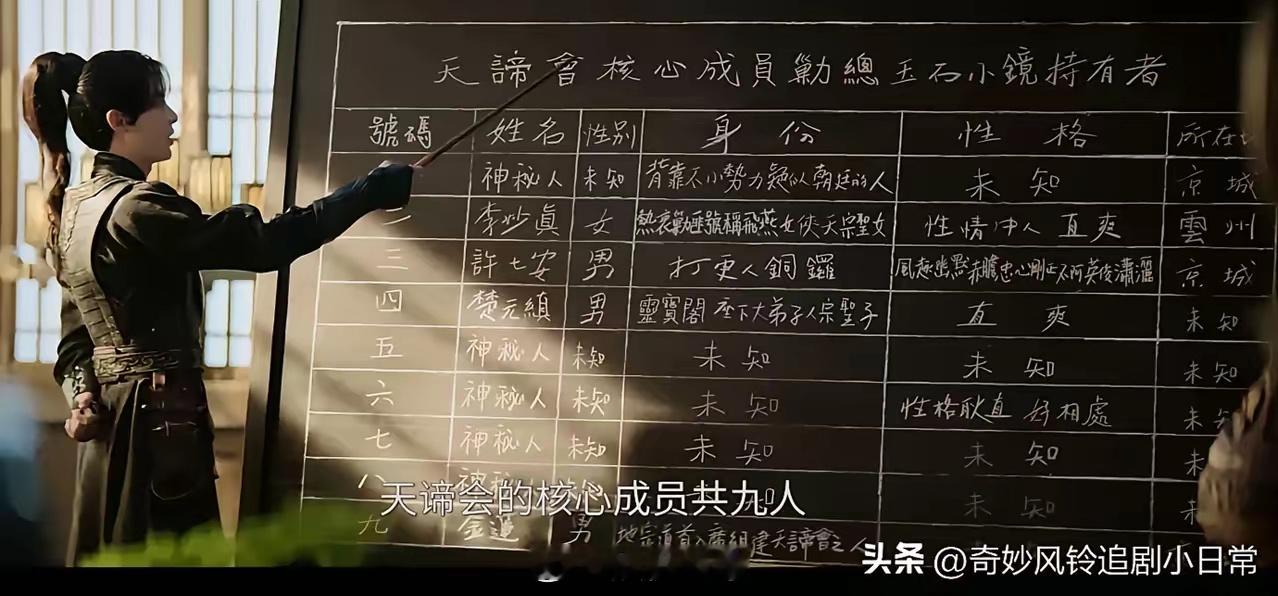 天諦會核心成員勦總玉石小鏡持有者
號碼 姓名 性别 身份 性格 所在
神秘人 未知 背靠不小勢力疑似朝廷的人 未知 京城
二 李妙真 女 熱衷勦匪號稱飛燕女俠天宗聖女 性情中人 直爽 雲州
三 許七安 男 打更人銅鑼 風趣幽默赤膽忠心剛正不阿英俊瀟灑 京城
四 楚元縝 男 靈寶閣 座下大弟子人宗聖子 直爽 未知
五 神秘人 未知 未知 未知 未知
六 神秘人 未知 未知 性格耿直 好相處 未知
七 神秘人 未知 未知 未知 未
八 神秘 知 未知 未
九 金蓮 男 地宗道首 組建天諦會之人
天谛会的核心成员共九人
头条 @奇妙风铃追剧小日常